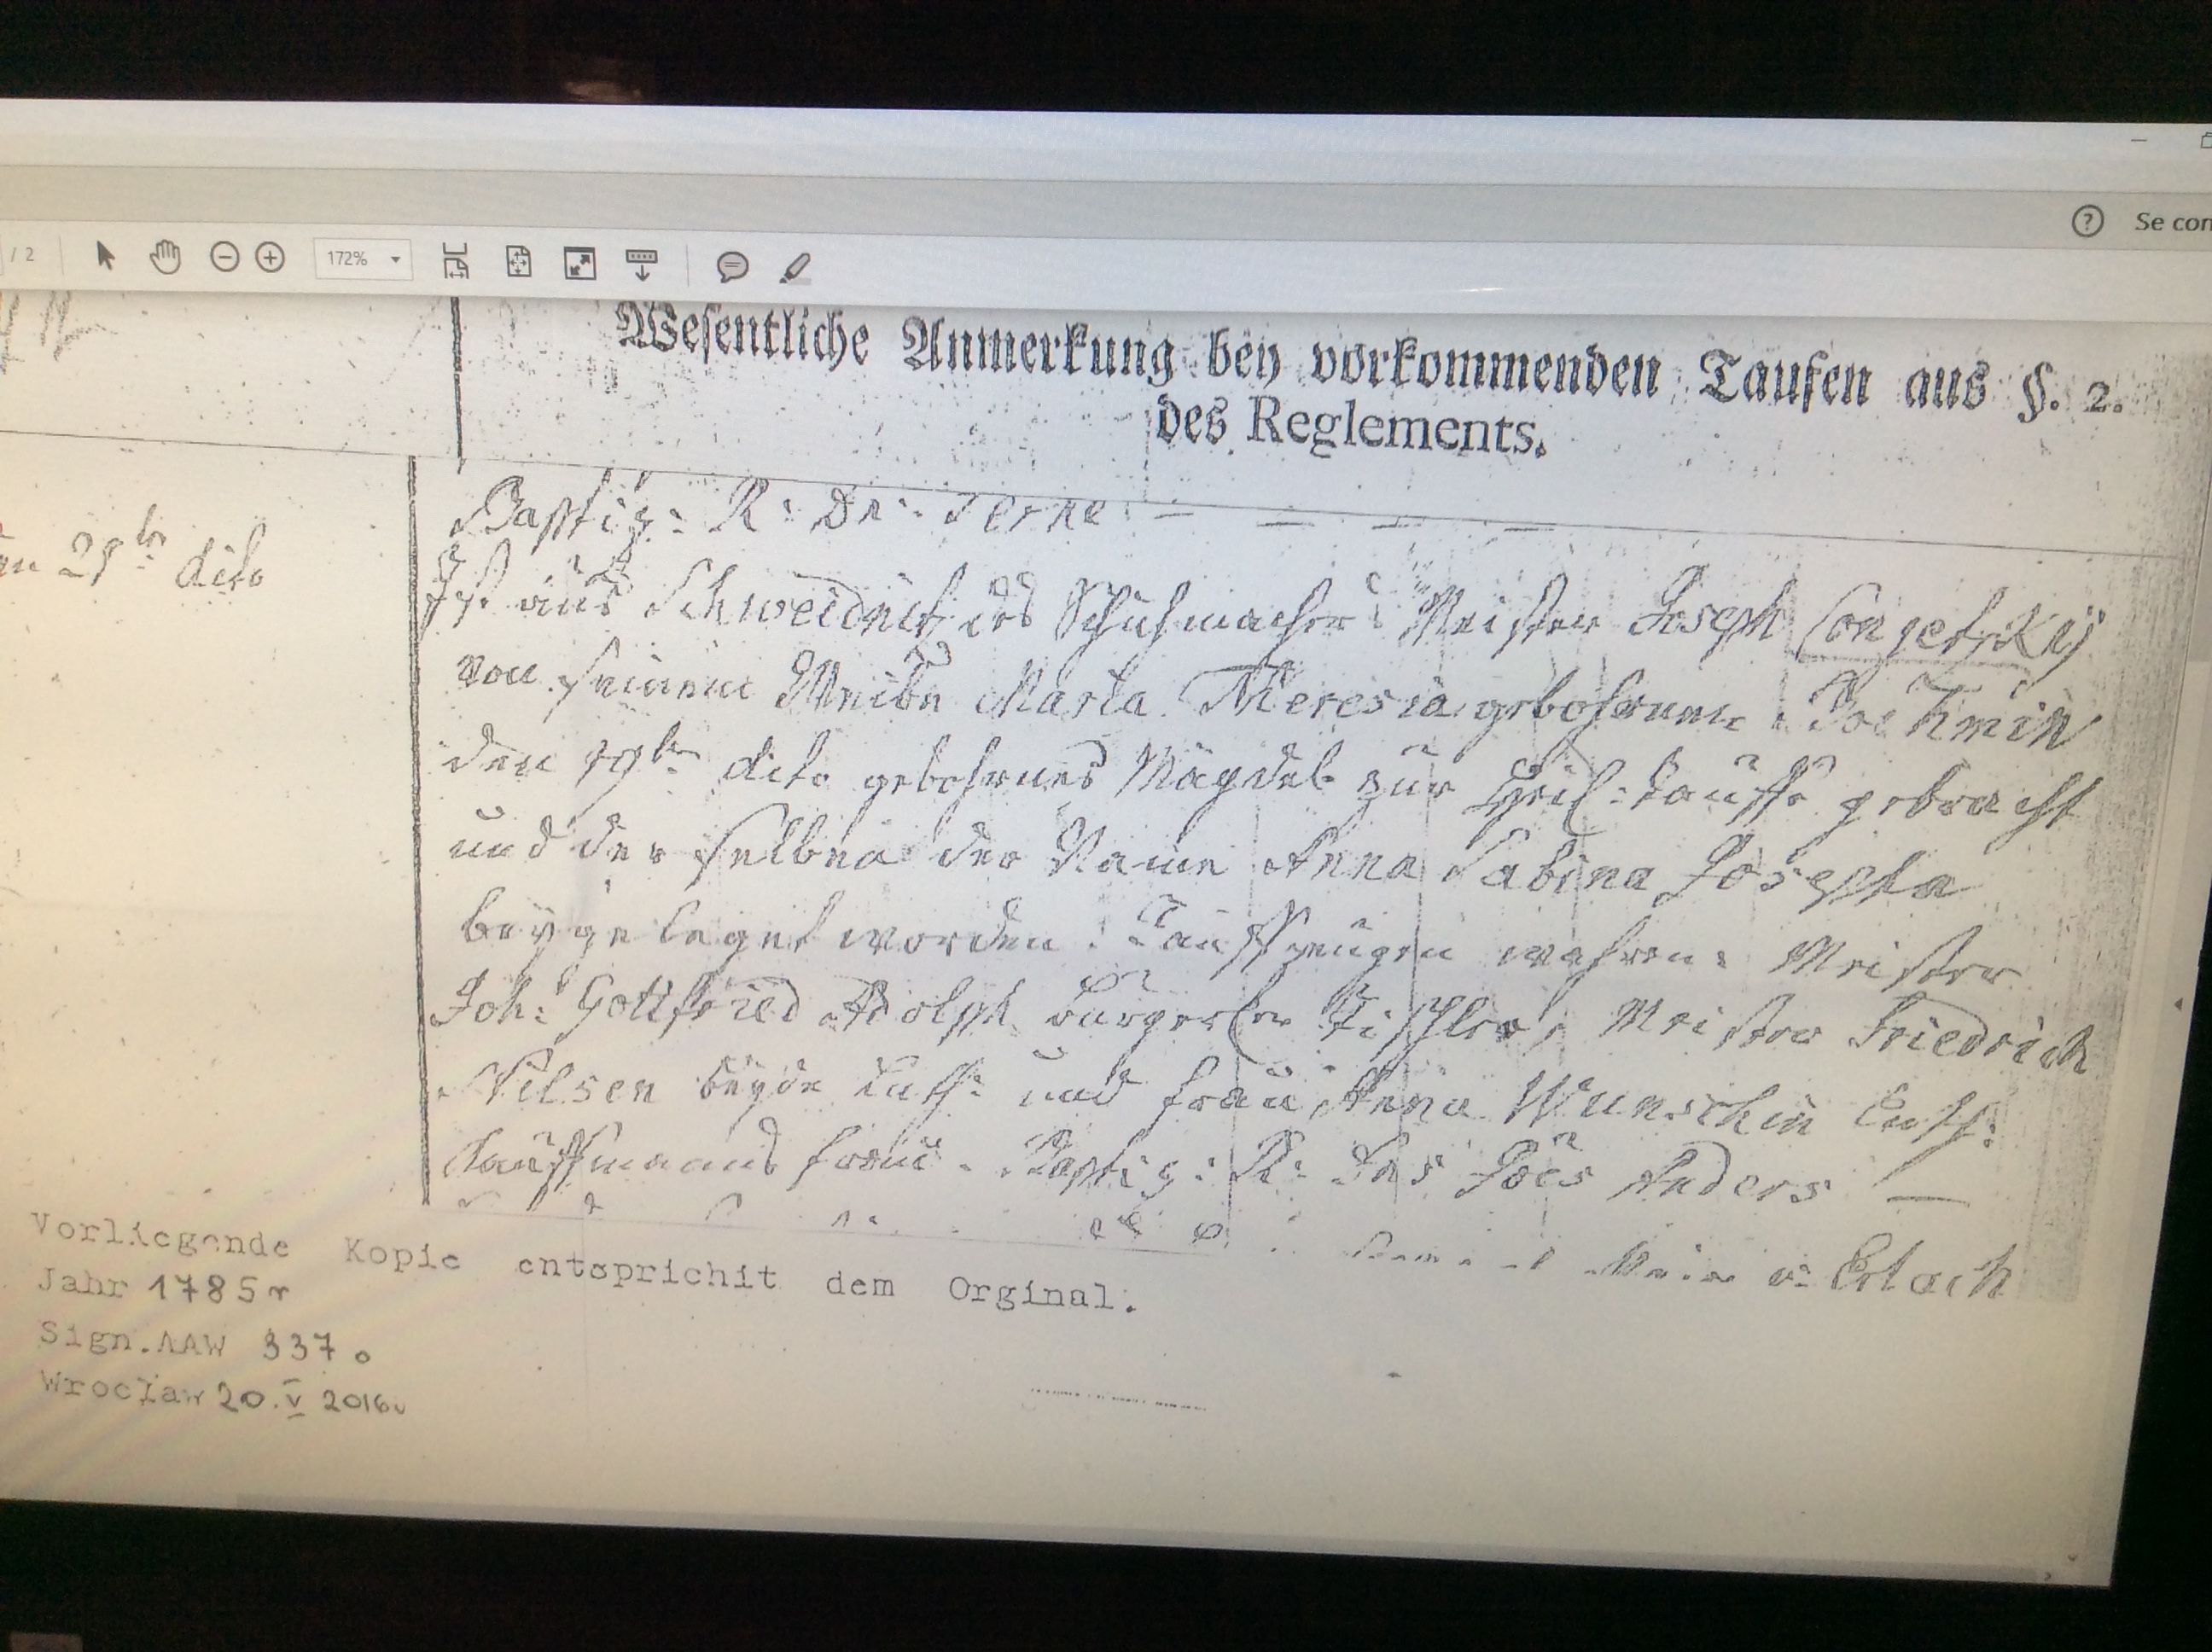 / 2
172%
Se con
Wesentliche Anmerkung bey vorkommenden Taufen aus §. 2.
des Reglements.
Baptiz: R: Dn: Terne — — — —
dito
Ist aus Schweidnitz des Schuhmacher Meister Joseph Congetzkij
von seinem Weibe Maria Theresia gebohrnene
den 19ten dito gebohrnes Mägdel zur Heil: tauffe gebracht
und der selben der Name Anna Sabina Josepha
beygeleget worden. Tauffzeugen wahren: Meister
Joh: Gottfried Adolph bürgerler Tischler, Meister Friedrich
Nilsen beyde Luth: und frau Anna Wunschin Luth:
Kauffmanns frau. Baptiz: R: Dns Joes Anders —
v: Erlach
Vorliegende Kopie entsprichit dem Orginal.
Jahr 1785r
Sign.AAW 337o
Wrocław 20.V 2016r